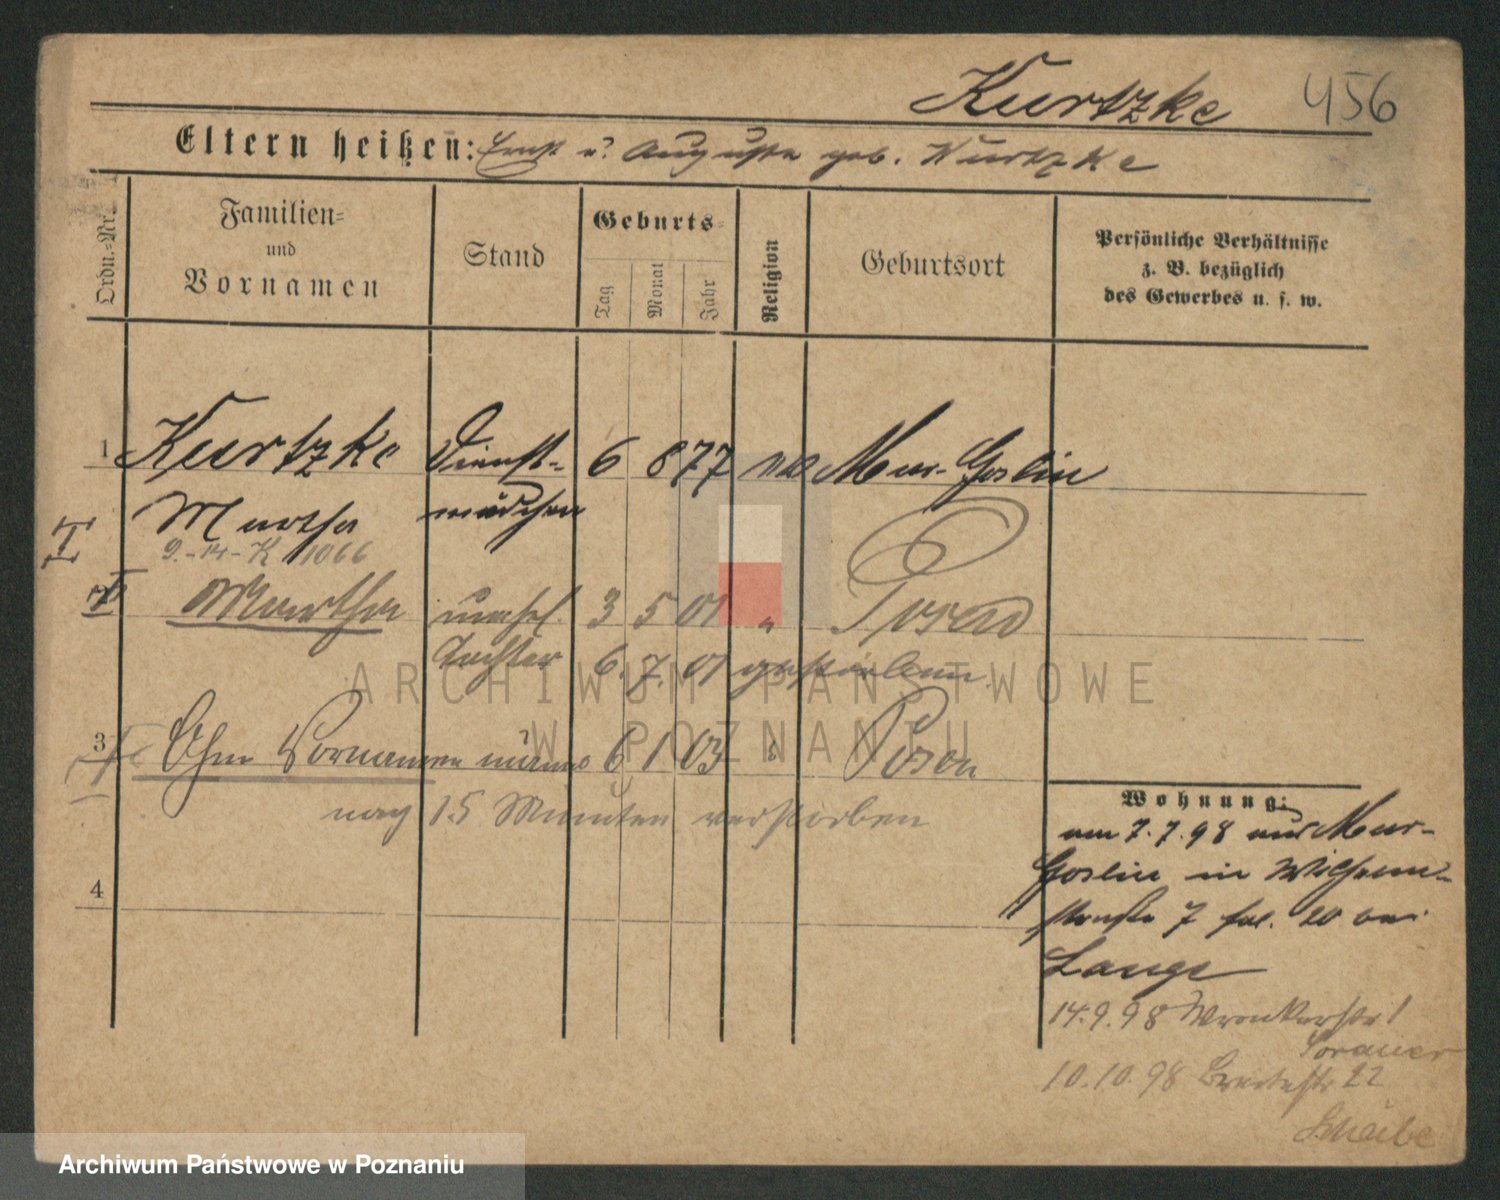 Kurtzke 456
Eltern heißen: Ernst u. Auguste geb. Kurtzke
Ordn.-Nr.
Familien-
und
Vornamen
Stand
Geburts-
Tag
Monat
Jahr
Religion
Geburtsort
Persönliche Verhältnisse
z. B. bezüglich
des Gewerbes u. s. w.
1 Kurtzke Dienst- 6 8 77 Mur. Goslin
Martha mädchen
9.-14-K 1066
Martha unehl. 3 5 01 " Posen
Tochter 6. 7. 01 gestorben
3 Ohne Vornamen 6 1 03 " Posen
15 Minuten verstorben
4
Wohnung:
am 7.7.98 aus Mur-
Goslin in Wilhelm-
straße 7 bei
Lange
14.9.98 Wronkerstr 1
Sorauer
10.10.98 Breitestr 22
Scheibe
ARCHIWUM PAŃSTWOWE
W POZNANIU
Archiwum Państwowe w Poznaniu